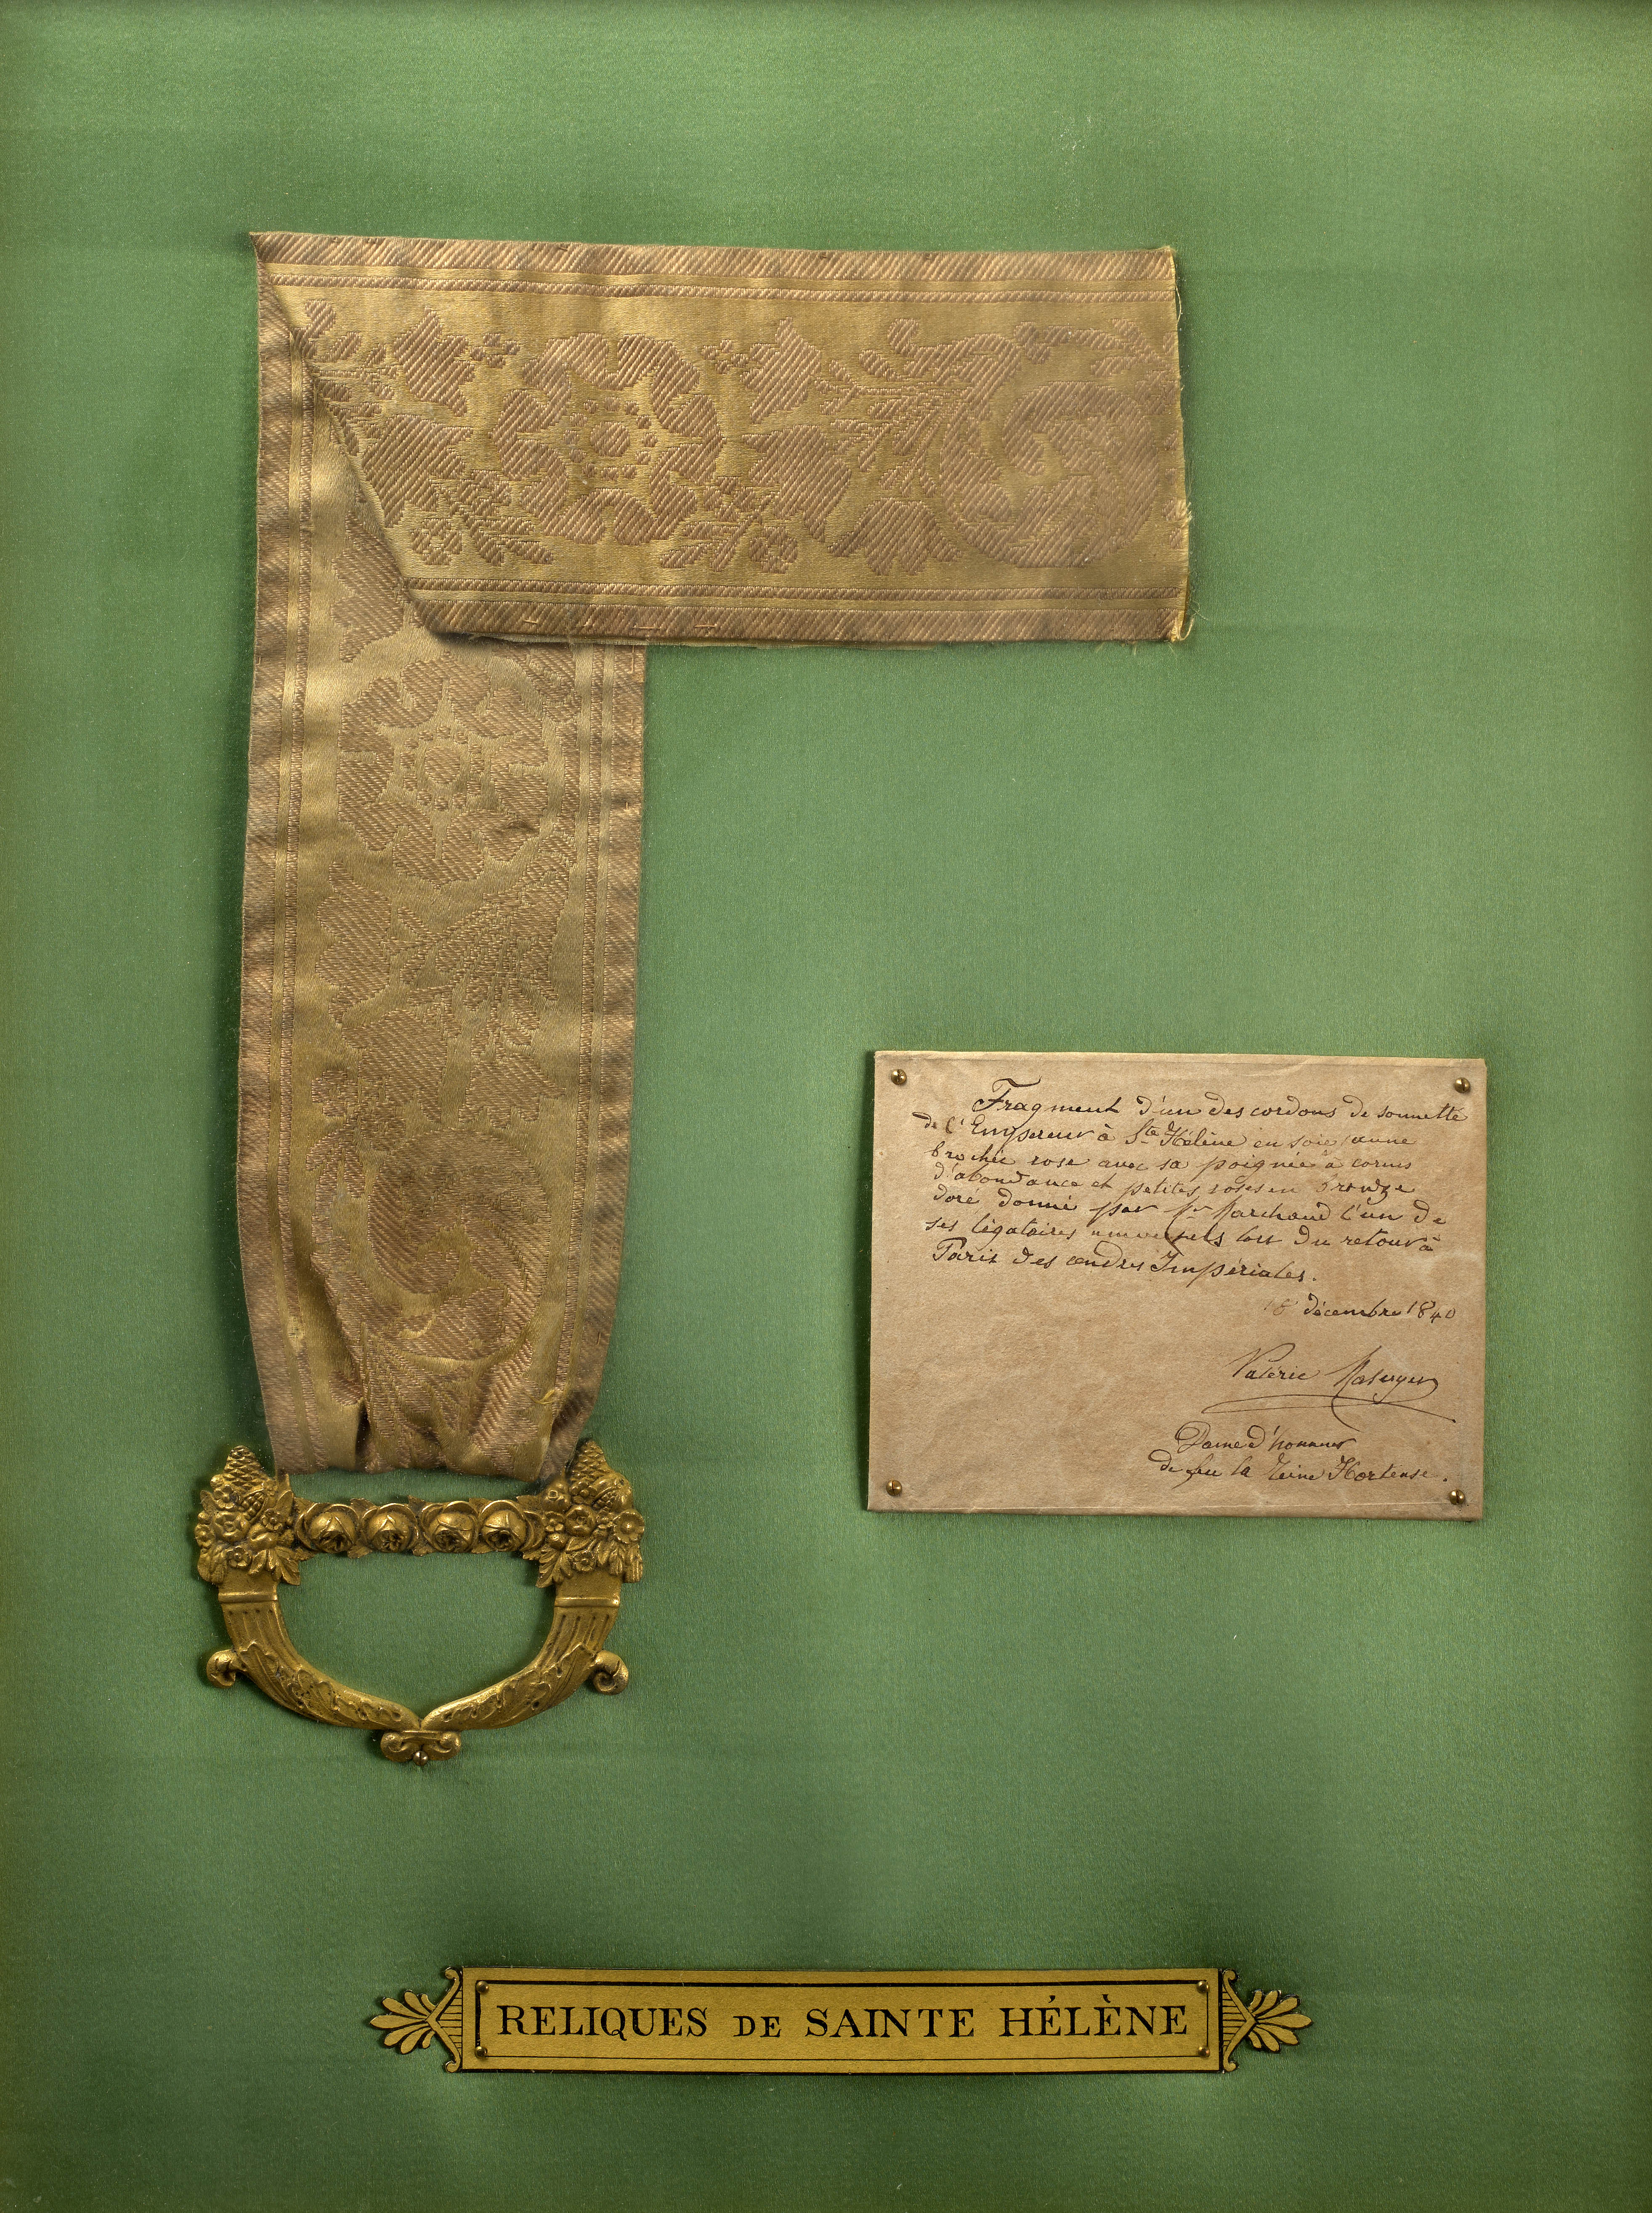 Fragment d'un des cordons de sonnette
de l'Empereur à Ste Hélène en soie jaune
brochée rose avec sa poignée à cornes
d'abondance et petites roses en bronze
doré donné par Mr Marchand l'un de
ses légataires universels lors du retour à
Paris des cendres Impériales.
18 décembre 1840
Valérie Masuyer
Dame d'honneur
de feu la reine Hortense.
RELIQUES DE SAINTE HÉLÈNE